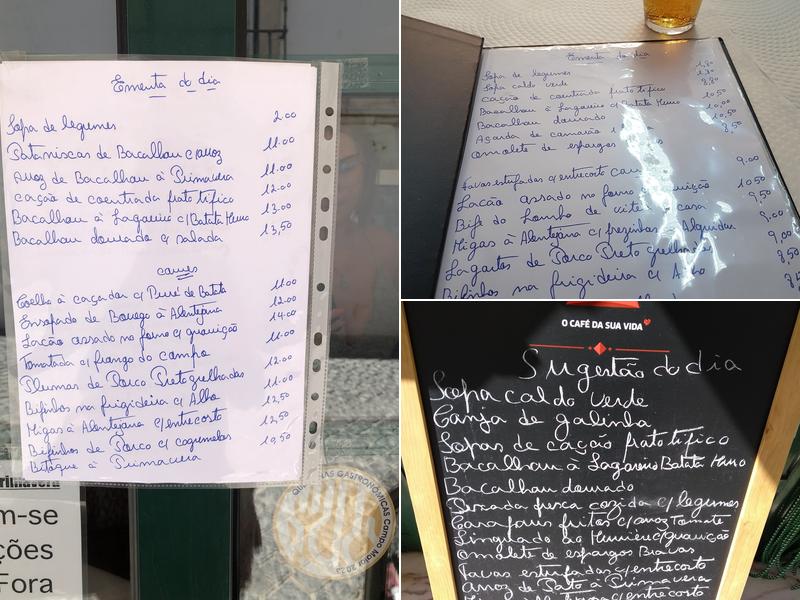 Ementa do dia
Sopa de legumes 2.00
Pataniscas de Bacalhau c/arroz 11.00
Arroz de Bacalhau à Primavera 11.00
Cação de coentrada prato tífico 12.00
Bacalhau à Lagareiro c/Batata Murro 13.00
Bacalhau dourado c/ salada 13,50
carnes
Coelho à caçador c/ Puré de Batata 11.00
Ensopado de Borrego à Alentejana 12.00
Lacão assado no forno c/ guarnição 14.00
Tomatada c/ frango do campo 11.00
Plumas de Porco Preto grelhadas 12.00
Bifinhos na frigideira c/ Alho 11.00
Migas à Alentejana c/entrecosto 12,50
Bifinhos de Porco c/ cogumelos 12,50
Bitoque à Primavera 10,50
m-se
ções
Fora
GASTRONÓMICAS Campo Maior 2023
Ementa do dia
Sopa de legumes 1,80
Sopa caldo verde 1,80
cação de coentrada prato tífico 10,50
Bacalhau à Lagareiro c/Batata Murro
Bacalhau dourado
Açorda de camarão
omolete de espargos 8,50
Favas estufadas c/entrecosto 9.00
Lacão assado no forno guarnição 10,50
Bife do Lombo de vitela casa 9,50
Migas à Alentejana c/ prezinhos Alguidar 9,00
Lagartos de Porco Preto grelhados 9,00
Bifinhos na frigideira c/ Alho 8,50
O CAFÉ DA SUA VIDA
Sugestão do dia
Sopa caldo verde
Canja de galinha
Sopas de cação prato tífico
Bacalhau à Lagareiro Batata Murro
Bacalhau dourado
Pescada fresca cozida c/ legumes
Carapaus fritos c/ arroz Tomate
Linguado à Munier c/guarnição
omolete de espargos Bravos
Favas estufadas c/entrecosto
Arroz de Pato à Primavera